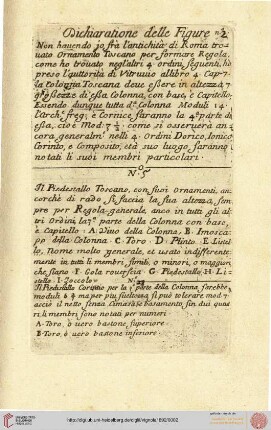 Dichiaratione delle Figure nº2
Non hauendo jo frà l'antichità di Roma tro=
uato Ornamento Toscano per formare Regola,
come hò trouato negl'altri 4 ordini, seguenti, hò
preso l'auttorità di Vitruuio al libro 4 Cap=7
la colonna Toscana deue essere in altezza 7
grossezze di essa Colonna, con base, e Capitello.
Essendo dunque tutta dª Colonna Moduli 14
l'archº fregº e Cornice, saranno la 4ª parte di
essa, cioè Mod 3½ come si osseruerà an
cora generalmᵉ nelli 4 Ordini Dorico, Ionico
Corinto, e Composito, età suo luogo saranno
notati li suoi membri particolari
Nº5
Il Piedestallo Toscano, con suoi ornamenti, an
corchè di rado si faccia la sua altezza, sem
pre per Regola generale, anco in tutti gli al
tri Ordini la 3ª parte della Colonna con base,
e Capitello. A. Viuo della Colonna, B. Imosca
po della Colonna. C. Toro. D. Plinto. E Listel
lo, Nome molto generale, et usato indifferente
mente in tutti li membri, simili, o minori, o maggiori
che siano F. Gola rouerscia G. Piedestallo, H. Li=
stello I zoccolo
Il Piedestallo Corintio per la 3ª parte della Colonna sarebbe
moduli 6⅔ ma per piu sueltezza si può tolerare mod 7
acciò il netto senza Cimacia e basamento, sin dui qua
ri li membri sono notati per numeri
A. Toro, ò uero bastone superiore.
B. Toro, ò uero bastone inferiore.
http://digi.ub.uni-heidelberg.de/diglit/vignola1692/0002